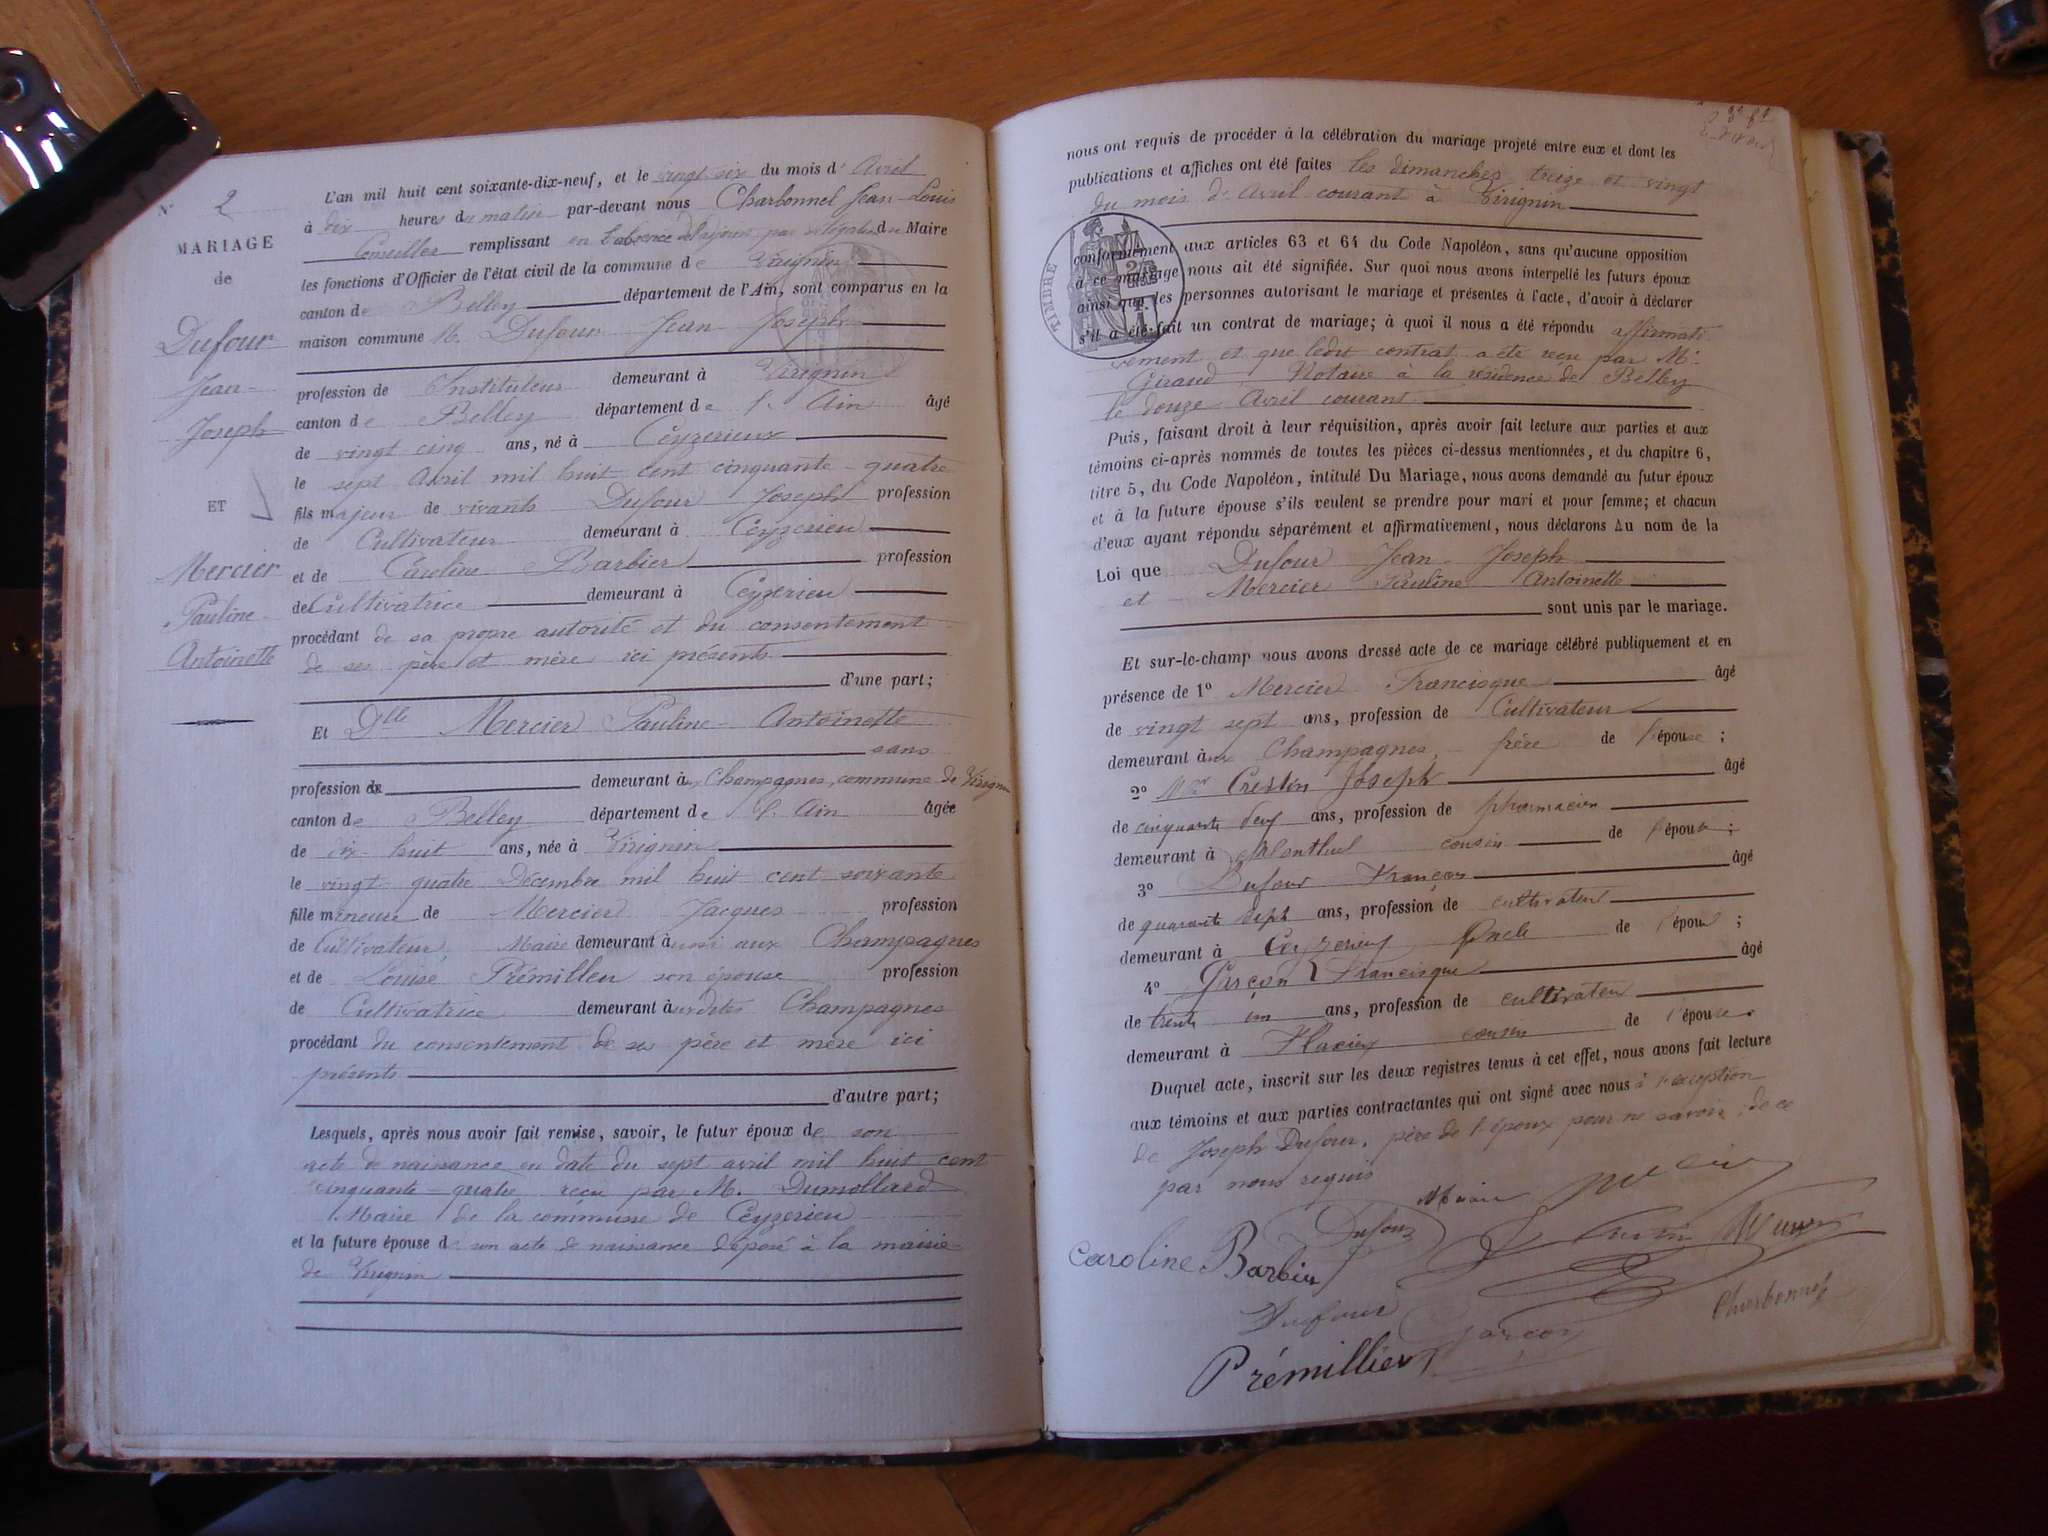 N° 2
MARIAGE
de
Dufour
Jean
Joseph
ET
Mercier
Pauline
Antoinette
L'an mil huit cent soixante-dix-neuf, et le vingt six du mois d'Avril
à dix heures du matin par-devant nous Charbonnel Jean-Louis
Conseiller remplissant en l'absence de l'adjoint par délégation du Maire
les fonctions d'Officier de l'état civil de la commune de Virignin
canton de Belley département de l'Ain, sont comparus en la
maison commune M. Dufour Jean Joseph
profession de Instituteur demeurant à Virignin
canton de Belley département de l'Ain âgé
de vingt-cinq ans, né à Ceyzerieux
le sept Avril mil huit cent cinquante-quatre
fils majeur de vivants Dufour Joseph profession
de Cultivateur demeurant à Ceyzerieu
et de Caroline Barbier profession
de Cultivatrice demeurant à Ceyzerieu
procédant de sa propre autorité et du consentement
de ses père et mère ici présents
d'une part;
Et Dlle Mercier Pauline-Antoinette
sans
profession de demeurant aux Champagnes, commune de Virignin
canton de Belley département de l'Ain âgée
de dix-huit ans, née à Virignin
le vingt-quatre Décembre mil huit cent soixante
fille mineure de Mercier Jacques profession
de Cultivateur, Maire demeurant à aussi aux Champagnes
et de Louise Prémillieu son épouse profession
de Cultivatrice demeurant à auxdites Champagnes
procédant du consentement de ses père et mère ici
présents
d'autre part;
Lesquels, après nous avoir fait remise, savoir, le futur époux de son
acte de naissance en date du sept avril mil huit cent
cinquante-quatre reçu par M. Dumollard
Maire de la commune de Ceyzerieu
et la future épouse de son acte de naissance déposé à la mairie
de Virignin
nous ont requis de procéder à la célébration du mariage projeté entre eux et dont les
publications et affiches ont été faites les dimanches treize et vingt
du mois d'Avril courant à Virignin
TIMBRE
conformément aux articles 63 et 64 du Code Napoléon, sans qu'aucune opposition
à ce mariage nous ait été signifiée. Sur quoi nous avons interpellé les futurs époux
ainsi que les personnes autorisant le mariage et présentes à l'acte, d'avoir à déclarer
s'il a été fait un contrat de mariage; à quoi il nous a été répondu affirmati-
vement et que ledit contrat a été reçu par Me
Giraud, Notaire à la résidence de Belley
le douze Avril courant
Puis, faisant droit à leur réquisition, après avoir fait lecture aux parties et aux
témoins ci-après nommés de toutes les pièces ci-dessus mentionnées, et du chapitre 6,
titre 5, du Code Napoléon, intitulé Du Mariage, nous avons demandé au futur époux
et à la future épouse s'ils veulent se prendre pour mari et pour femme; et chacun
d'eux ayant répondu séparément et affirmativement, nous déclarons Au nom de la
Loi que Dufour Jean-Joseph
et Mercier Pauline Antoinette
sont unis par le mariage.
Et sur-le-champ nous avons dressé acte de ce mariage célébré publiquement et en
présence de 1° Mercier Francisque âgé
de vingt sept ans, profession de Cultivateur
demeurant aux Champagnes, frère de l'épouse;
2° Mr Crestin Joseph âgé
de cinquante deux ans, profession de pharmacien
demeurant à cousin de l'épouse;
3° Dufour François âgé
de quarante sept ans, profession de cultivateur
demeurant à Ceyzerieu Oncle de l'époux;
4° Garçon Francisque âgé
de trente un ans, profession de cultivateur
demeurant à Flaxieu cousin de l'épouse.
Duquel acte, inscrit sur les deux registres tenus à cet effet, nous avons fait lecture
aux témoins et aux parties contractantes qui ont signé avec nous à l'exception
de Joseph Dufour, père de l'époux pour ne savoir, de ce
par nous requis
Dufour
Caroline Barbier
Dufour Garçon
Charbonnel
Prémillieu